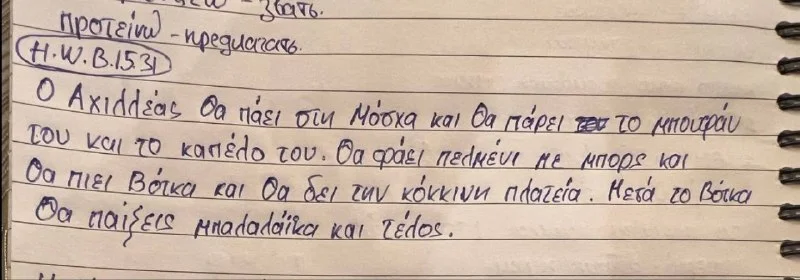 - звать.
προτείνω - предлагать.
H.W.B.153)
Ο Αχιλλέας θα πάει στη Μόσχα και θα πάρει το μπουφάν
του και το καπέλο του. Θα φάει πελμένι με μπορς και
θα πιει Βότκα και θα δει την κόκκινη πλατεία. Μετά το Βότκα
θα παίξεις μπαλαλάϊκα και τέλος.